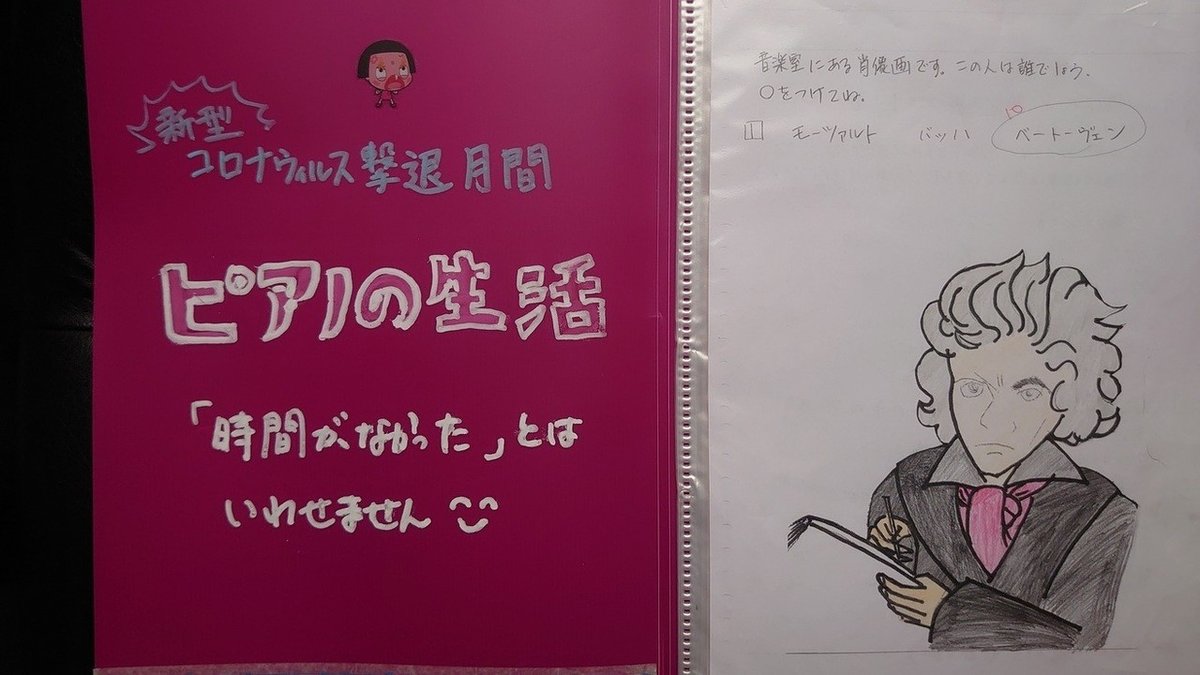 新型
コロナウィルス撃退月間
ピアノの生活
「時間がなかった」とは
いわせません
音楽室にある肖像画です。この人は誰でしょう。
○をつけてね。
1 モーツァルト バッハ ベートーヴェン